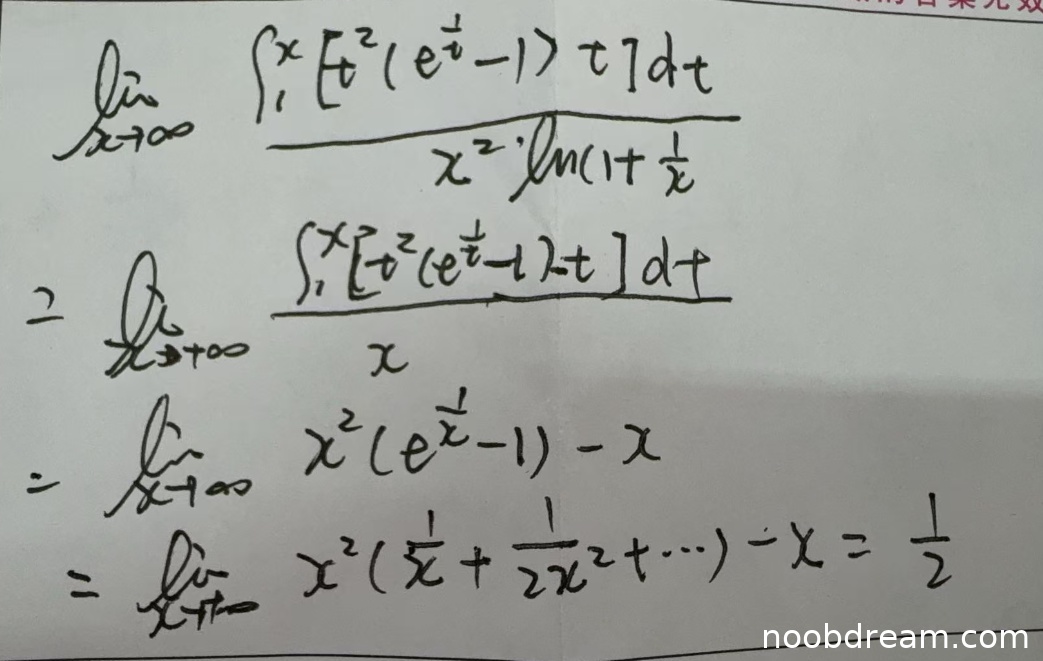 lim x→∞ ∫₁ˣ [t²(e^{1/t}-1) t]dt / x²·ln(1+1/x
= lim x→+∞ ∫₁ˣ[t²(e^{1/t}-1)-t]dt / x
= lim x→+∞ x²(e^{1/x}-1)-x
= lim x→+∞ x²(1/x + 1/2x² + ···) - x = 1/2
noobdream.com